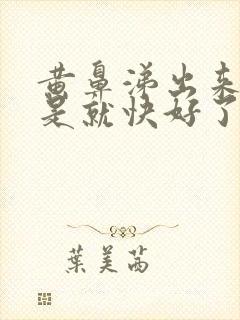 黄鼻涕出来
是就快好了
葉美茜